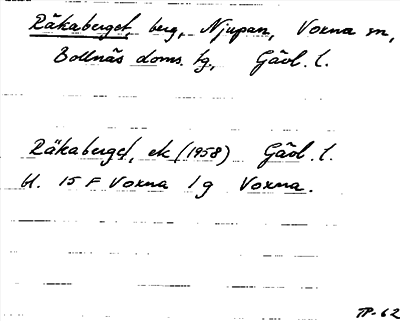 Räkaberget, berg, Njupan, Voxna sn,
Bollnäs doms. tg, Gävl. l.
Räkaberget, ek (1958) Gävl. l.
bl. 15 F Voxna 1 g Voxna.
TP-62